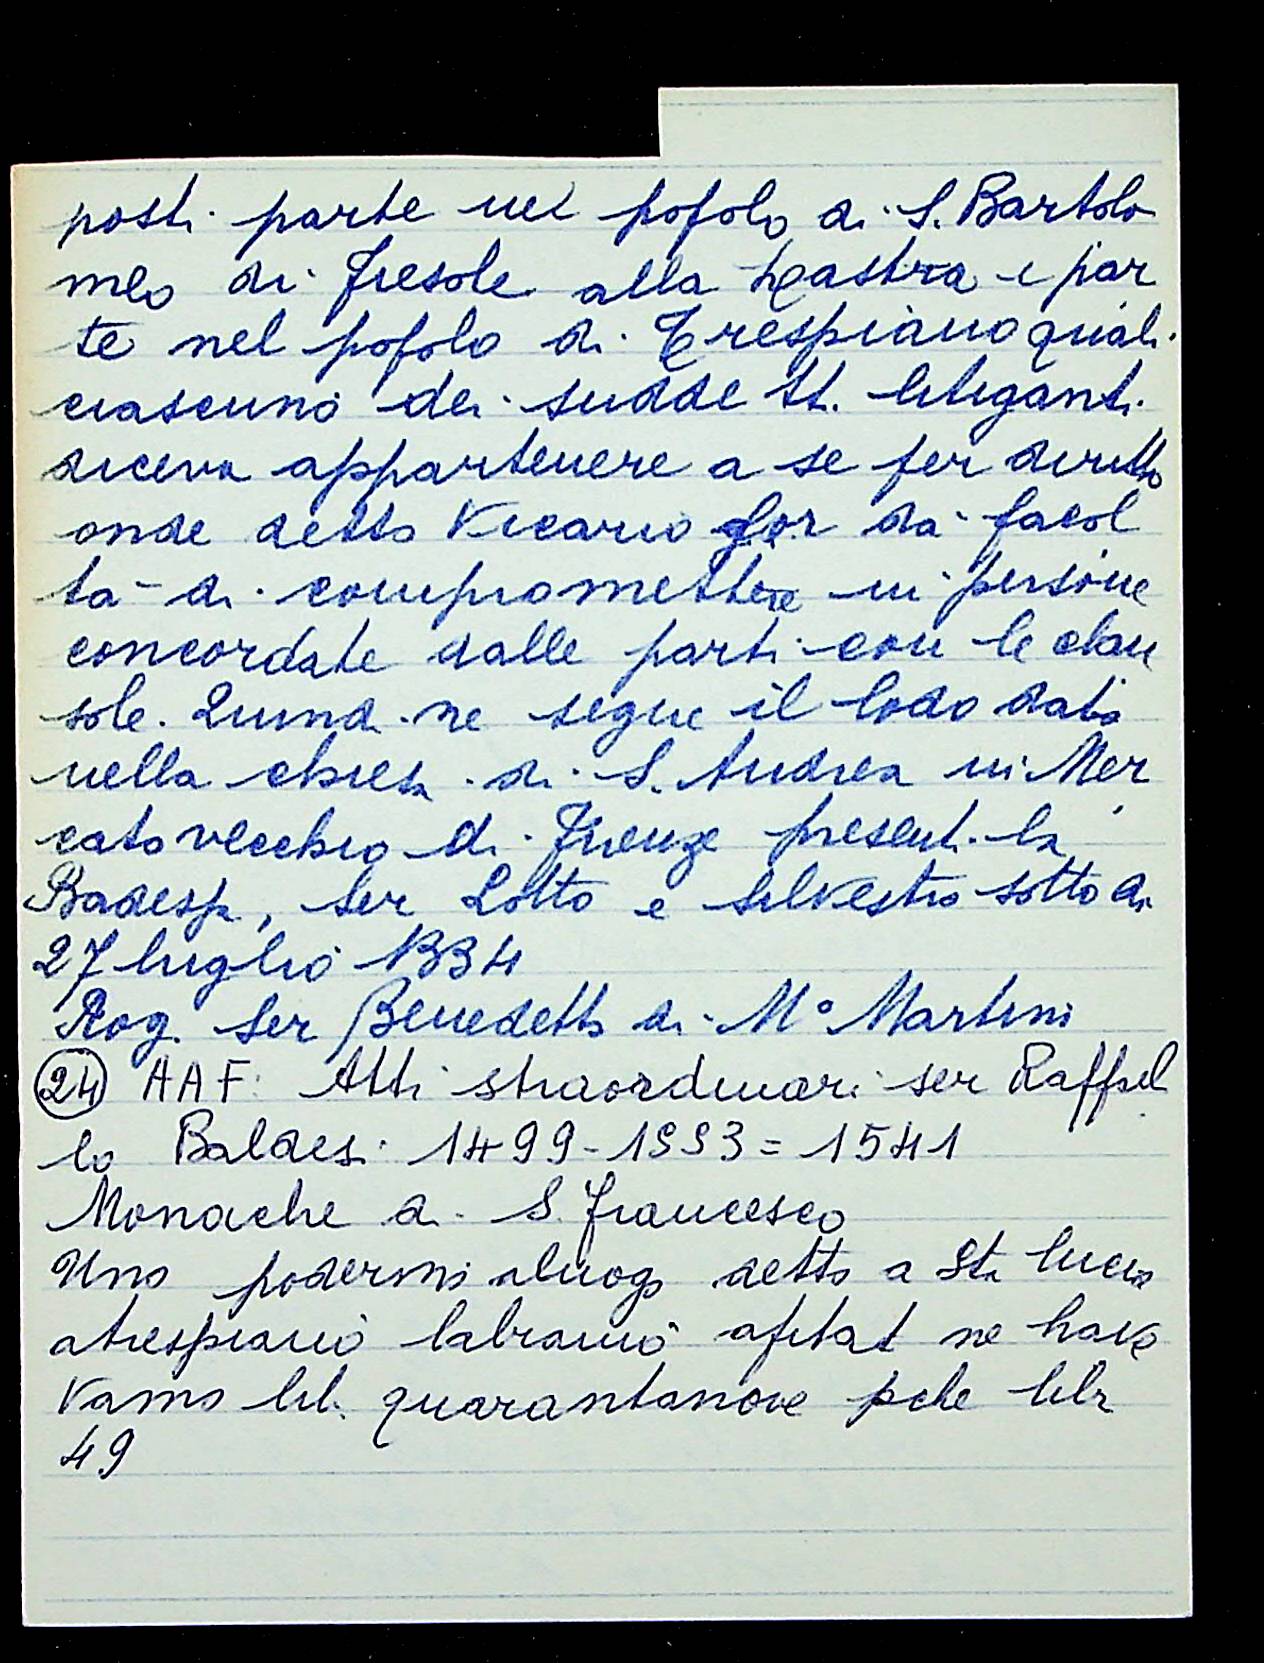 posti parte nel popolo di S. Bartolo
meo di Fiesole alla Lastra e par
te nel popolo di Trespiano quali
ciascuno dei sudde tt. litiganti
diceva appartenere a se per diritto
onde detto Vicario lor da facol
tà di compromettere in persone
concordate dalle parti con le clau
sole. Quindi ne segue il lodo dato
nella chiesa di S. Andrea in Mer
cato vecchio di Firenze presenti la
Badessa, Ser Lotto e Silvestro sotto di
27 luglio 1334
Rog. Ser Benedetto di M° Martini
24 AAF: Atti straordinari ser Raffael
lo Baldesi 1499-1993=1541
Monache di S. Francesco
Uno podermi aluogo detto a Sta Lucia
atrespiano labiamo afitat ne have
vamo lib. quarantanove pche libr
49